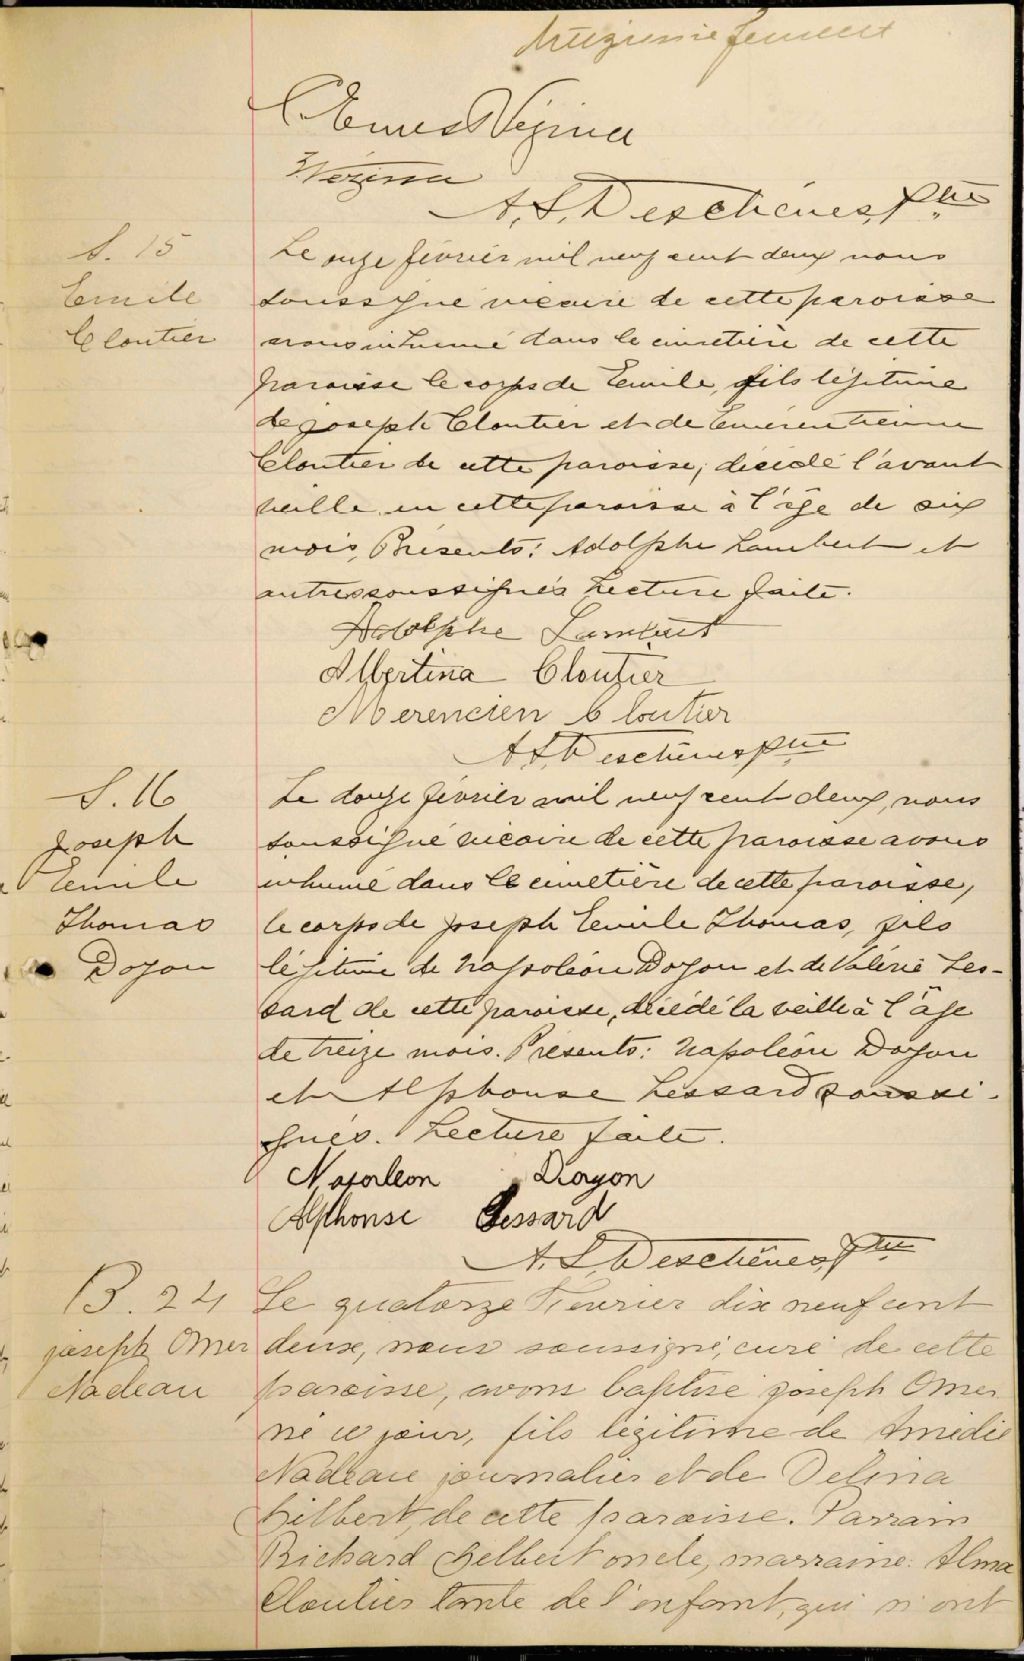 feuillet
Vézina
Vézina
A. S. Deschênes, Ptre
S. 15
Emile
Cloutier
Le onze février mil neuf cent deux nous
soussigné vicaire de cette paroisse
avons inhumé dans le cimetière de cette
paroisse le corps de Emile, fils légitime
de Joseph Cloutier et de Emérentienne
Cloutier de cette paroisse, décédé l'avant
veille en cette paroisse à l'âge de six
mois, Présents: Adolphe Lambert et
autres soussignés Lecture faite.
Adolphe Lambert
Albertina Cloutier
Merencien Cloutier
A. S. Deschênes ptre
S. 16
Joseph
Emile
Thomas
Doyon
Le douze février mil neuf cent deux, nous
soussigné vicaire de cette paroisse avons
inhumé dans le cimetière de cette paroisse,
le corps de Joseph Emile Thomas, fils
légitime de Napoléon Doyon et de Valérie Les-
sard de cette paroisse, décédé la veille à l'âge
de treize mois. Présents: Napoléon Doyon
et Alphonse Lessard soussi-
gnés. Lecture faite.
Napoleon Doyon
Alphonse Lessard
A. S. Deschênes, Ptre
B. 24
joseph Omer
Nadeau
Le quatorze Fevrier dix neuf cent
deux, nous soussigné, curé de cette
paroisse, avons baptisé joseph Omer
né ce jour, fils légitime de Amédie
Nadeau journalier et de Délina
Gilbert, de cette paroisse. Parrain
Richard Gilbert oncle, marraine: Alma
Cloutier tante de l'enfant, qui n'ont